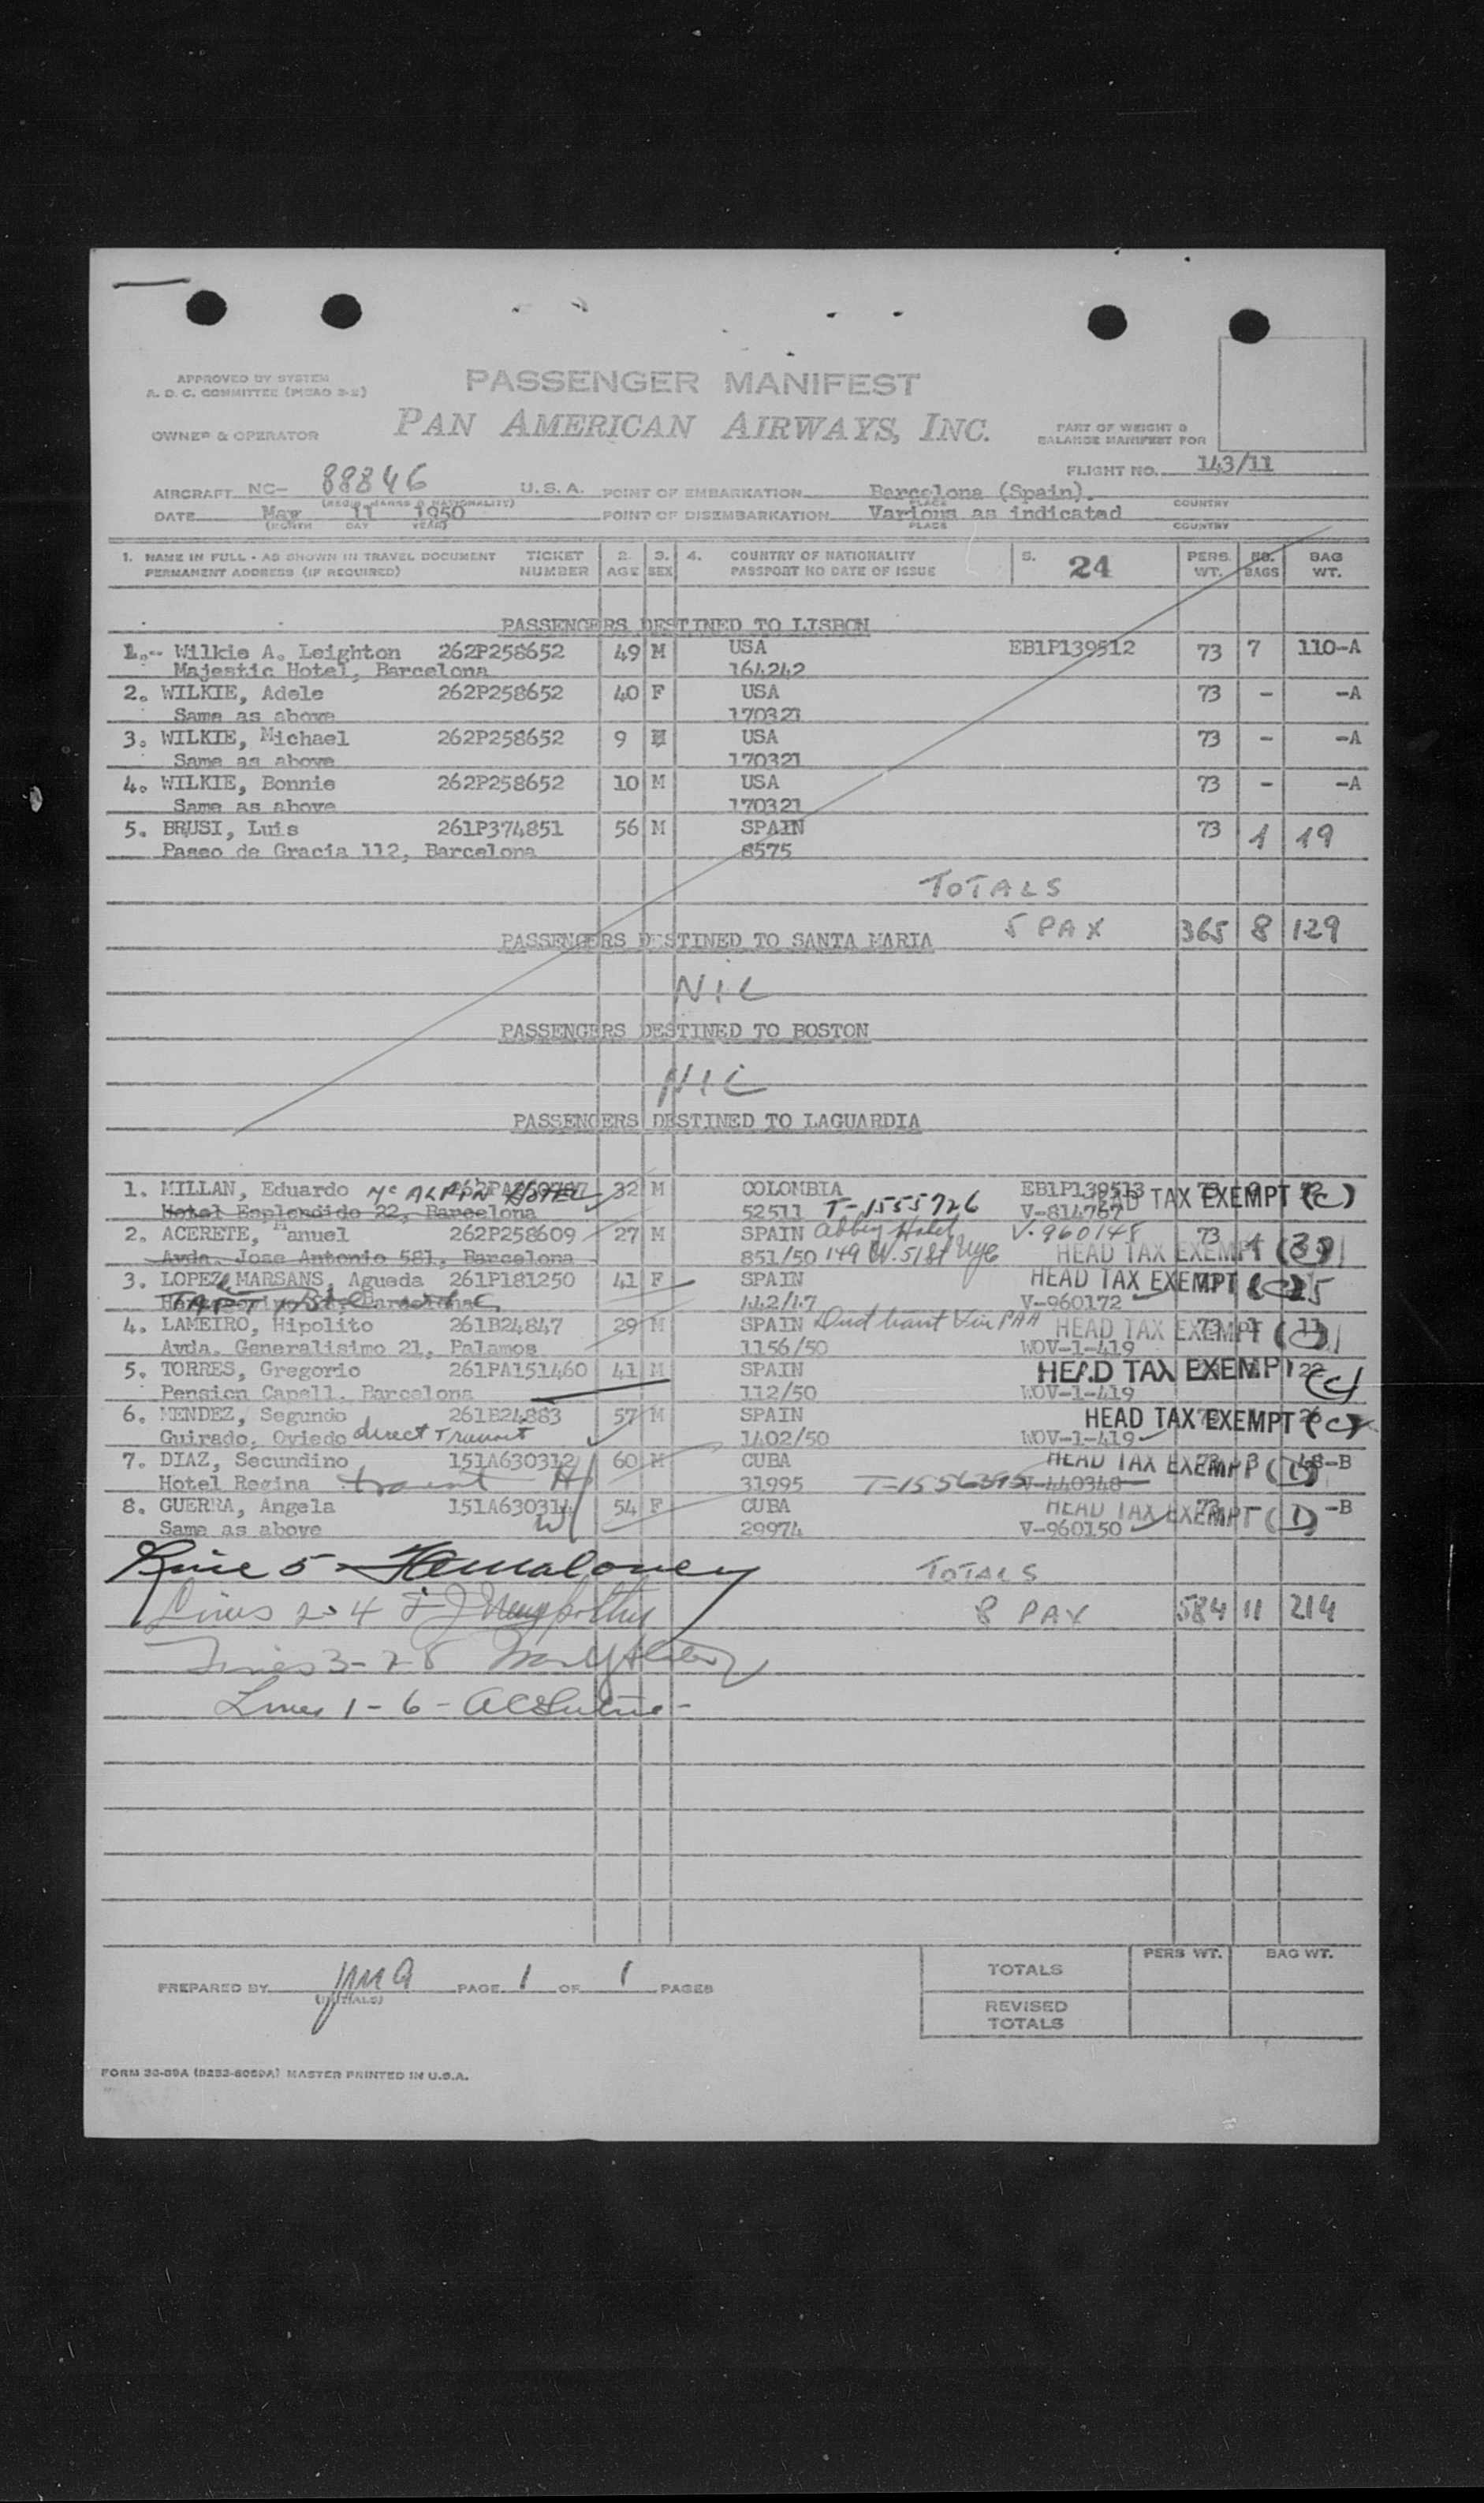 APPROVED BY SYSTEM
A. D. C. COMMITTEE (PICAO 2-2)
PASSENGER MANIFEST
OWNER & OPERATOR
PAN AMERICAN AIRWAYS, INC.
PART OF WEIGHT &
BALANCE MANIFEST FOR
FLIGHT NO. 143/11
AIRCRAFT NC- 88846 U.S.A. POINT OF EMBARKATION Barcelona (Spain). COUNTRY
(REGIS. MARKS & NATIONALITY) PLACE
DATE May 11 1950 POINT OF DISEMBARKATION Various as indicated COUNTRY
(MONTH DAY YEAR) PLACE
1. NAME IN FULL - AS SHOWN IN TRAVEL DOCUMENT TICKET 2. 3. 4. COUNTRY OF NATIONALITY 5. 24 PERS. NO. BAG
PERMANENT ADDRESS (IF REQUIRED) NUMBER AGE SEX PASSPORT NO DATE OF ISSUE WT. BAGS WT.
PASSENGERS DESTINED TO LISBON
1.- Wilkie A. Leighton 262P258652 49 M USA EB1P139512 73 7 110-A
Majestic Hotel, Barcelona 164242
2. WILKIE, Adele 262P258652 40 F USA 73 - -A
Same as above 170321
3. WILKIE, Michael 262P258652 9 USA 73 - -A
Same as above 170321
4. WILKIE, Bonnie 262P258652 10 M USA 73 - -A
Same as above 170321
5. BRUSI, Luis 261P374851 56 M SPAIN 73 1 19
Paseo de Gracia 112, Barcelona 8575
TOTALS
5 PAX 365 8 129
PASSENGERS DESTINED TO SANTA MARIA
NIL
PASSENGERS DESTINED TO BOSTON
NIL
PASSENGERS DESTINED TO LAGUARDIA
1. MILLAN, Eduardo Mc ALPIN HOTEL 32 M COLOMBIA EB1P139513 HEAD TAX EXEMPT (C)
Hotel Esplendido 22, Barcelona 52511 T-1555726 V-814767
2. ACERETE, Manuel 262P258609 27 M SPAIN Abbey Hotel V-960148 73 1
Avda. Jose Antonio 581, Barcelona 851/50 149 W. 51 St NYC HEAD TAX EXEMPT
3. LOPEZ MARSANS, Agueda 261P181250 41 F SPAIN HEAD TAX EXEMPT (C)
TAFT HOTEL NYC 442/47 V-960172
4. LAMEIRO, Hipolito 261B24847 29 M SPAIN via PAA HEAD TAX EXEMPT
Avda. Generalisimo 21, Palamos 1156/50 WOV-1-419
5. TORRES, Gregorio 261PA151460 41 M SPAIN HEAD TAX EXEMPT 22 (C)
Pension Capell. Barcelona 112/50 WOV-1-419
6. MENDEZ, Segundo 261B24883 57 M SPAIN HEAD TAX EXEMPT (C)
Guirado, Oviedo direct Transit 1402/50 WOV-1-419
7. DIAZ, Secundino 151A630312 60 M CUBA HEAD TAX EXEMPT (1) 48-B
Hotel Regina transit H/ 31995 T-1556395 V-440348
8. GUERRA, Angela 151A630314 54 F CUBA HEAD TAX EXEMPT (1) -B
Same as above W/ 29974 V-960150
Line 5 TOTALS
Lines 2-4 8 PAX 584 11 214
Lines 3-7-8
Lines 1-6-
PERS WT. BAG WT.
TOTALS
PREPARED BY PAGE 1 OF 1 PAGES
(INITIALS)
REVISED
TOTALS
MASTER PRINTED IN U.S.A.